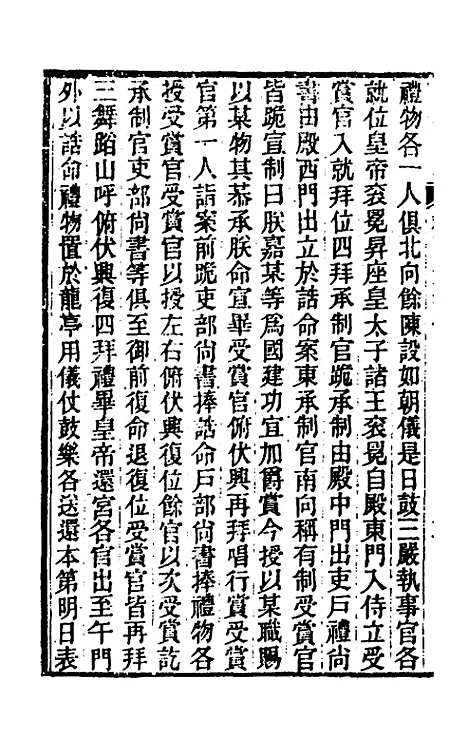 禮物各一人俱北向餘陳設如朝儀是日鼓三嚴執事官各
就位皇帝袞冕昇座皇太子諸王袞冕自殿東門入侍立受
賞官入就拜位四拜承制官跪承制由殿中門出吏戶禮尚
書由殿西門出立於誥命案東承制官南向稱有制受賞官
皆跪宣制曰朕嘉某等爲國建功宜加爵賞今授以某職賜
以某物其恭承朕命宣畢受賞官俯伏興再拜唱行賞受賞
官第一人詣案前跪吏部尚書捧誥命戶部尚書捧禮物各
授受賞官受賞官以授左右俯伏興復位餘官以次受賞訖
承制官吏部尚書等俱至御前復命退復位受賞官皆再拜
三舞蹈山呼俯伏興復四拜禮畢皇帝還宮各官出至午門
外以誥命禮物置於龍亭用儀仗鼓樂各送還本第明日表